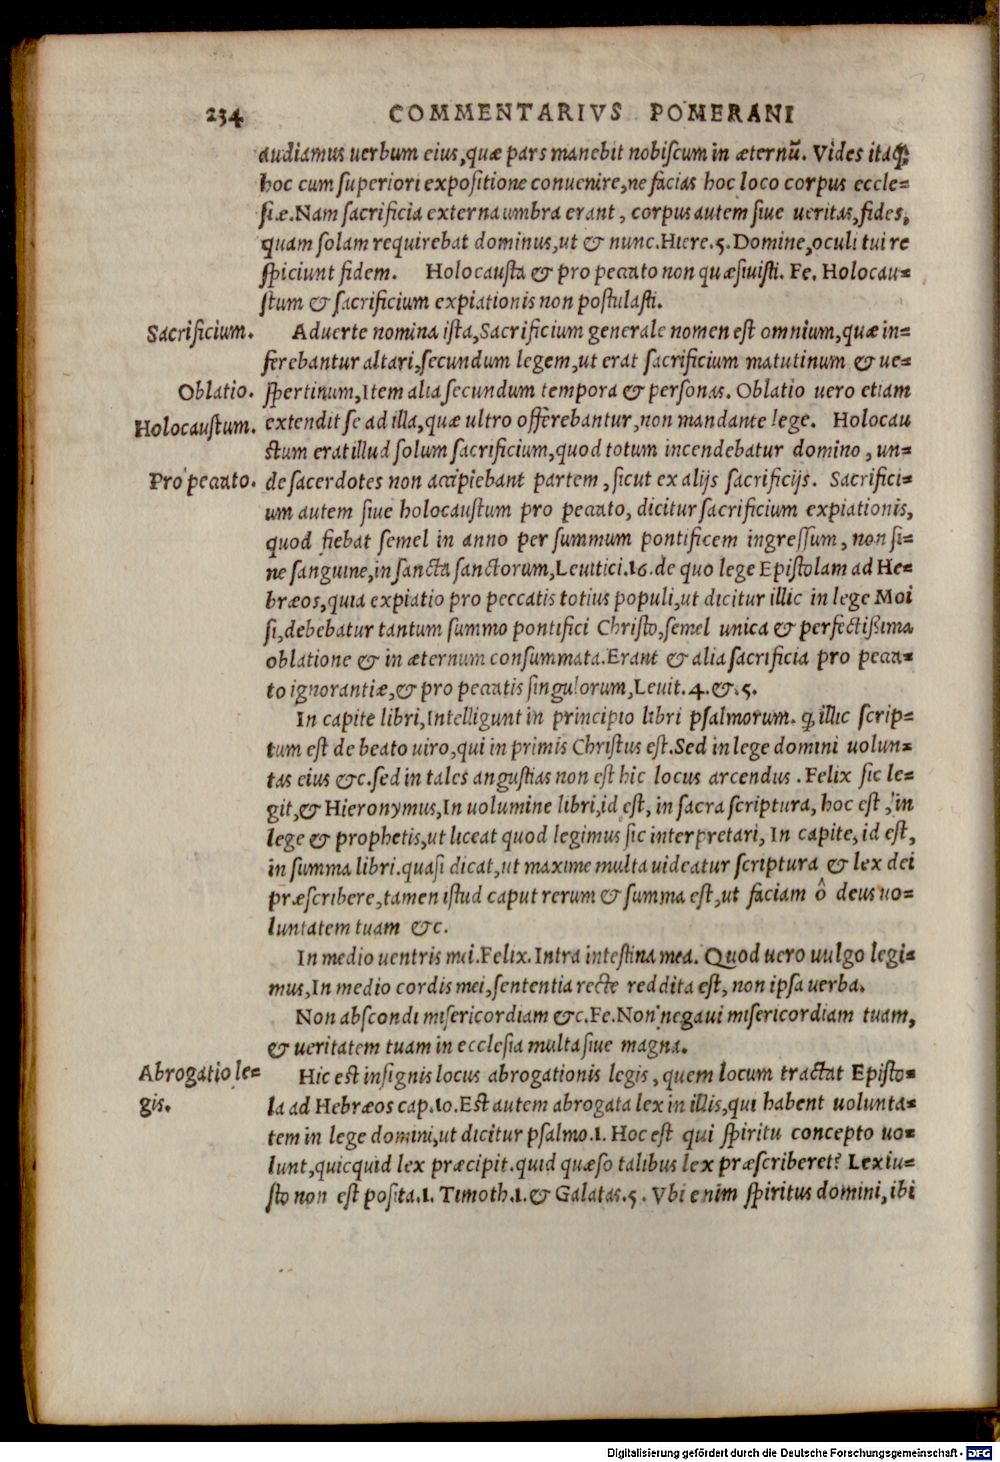 234 COMMENTARIVS POMERANI
audiamus uerbum eius,quæ pars manebit nobiscum in æternũ. Vides itaq;
hoc cum superiori expositione conuenire,ne facias hoc loco corpus eccle=
siæ.Nam sacrificia externa umbra erant, corpus autem siue ueritas,fides,
quam solam requirebat dominus,ut & nunc.Hiere.5.Domine,oculi tui re
spiciunt fidem. Holocausta & pro peccato non quæsiuisti. Fe. Holocau=
stum & sacrificium expiationis non postulasti.
Sacrificium. Aduerte nomina ista,Sacrificium generale nomen est omnium,quæ in=
ferebantur altari,secundum legem,ut erat sacrificium matutinum & ue=
Oblatio. spertinum,Item alia secundum tempora & personas. Oblatio uero etiam
Holocaustum. extendit se ad illa,quæ ultro offerebantur,non mandante lege. Holocau
stum erat illud solum sacrificium,quod totum incendebatur domino, un=
Pro peccato. de sacerdotes non accipiebant partem, sicut ex alijs sacrificijs. Sacrifici=
um autem siue holocaustum pro peccato, dicitur sacrificium expiationis,
quod fiebat semel in anno per summum pontificem ingressum, non si=
ne sanguine,in sancta sanctorum,Leuitici.16.de quo lege Epistolam ad He=
bræos,quia expiatio pro peccatis totius populi,ut dicitur illic in lege Moi
si,debebatur tantum summo pontifici Christo,semel unica & perfectißima
oblatione & in æternum consummata.Erant & alia sacrificia pro pecca=
to ignorantiæ,& pro peccatis singulorum,Leuit.4.&.5.
In capite libri,Intelligunt in principio libri psalmorum. ꝙ illic scrip=
tum est de beato uiro,qui in primis Christus est.Sed in lege domini uolun=
tas eius &c.sed in tales angustias non est hic locus arcendus. Felix sic le=
git,& Hieronymus,In uolumine libri,id est, in sacra scriptura, hoc est, in
lege & prophetis,ut liceat quod legimus sic interpretari, In capite, id est,
in summa libri.quasi dicat,ut maxime multa uideatur scriptura & lex dei
præscribere,tamen istud caput rerum & summa est,ut faciam ô deus uo=
luntatem tuam &c.
In medio uentris mei.Felix.Intra intestina mea. Quod uero uulgo legi=
mus,In medio cordis mei,sententia recte reddita est, non ipsa uerba.
Non abscondi misericordiam &c.Fe.Non negaui misericordiam tuam,
& ueritatem tuam in ecclesia multa siue magna.
Abrogatio le= Hic est insignis locus abrogationis legis, quem locum tractat Episto=
gis. la ad Hebræos cap.10.Est autem abrogata lex in illis,qui habent uolunta=
tem in lege domini,ut dicitur psalmo.1. Hoc est qui spiritu concepto uo=
lunt,quicquid lex præcipit.quid quæso talibus lex præscriberet? Lex iu=
sto non est posita.1. Timoth.1.& Galatas.5. Vbi enim spiritus domini,ibi
Digitalisierung gefördert durch die Deutsche Forschungsgemeinschaft - DFG